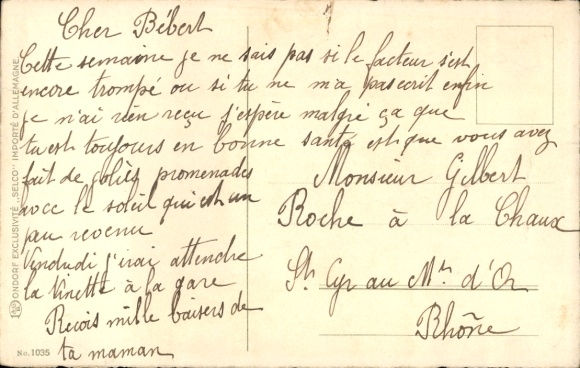 Cher Bébert
Cette semaine je ne sais pas si le facteur s'est
encore trompé ou si tu ne m'a pas ecrit enfin
je n'ai rien reçu j'espère malgré ça que
tu est toujours en bonne santé est que vous avez
fait de jolies promenades
avec le soleil qui est un
peu revenu
Vendredi j'irai attendre
la Ninette à la gare
Reçois mille baisers de
ta maman
Monsieur Gilbert
Roche à la Chaux
St Cyr au Mt d'Or
Rhône
ONDORF EXCLUSIVITÉ „SELCO" IMPORTÉ D'ALLEMAGNE
No. 1035